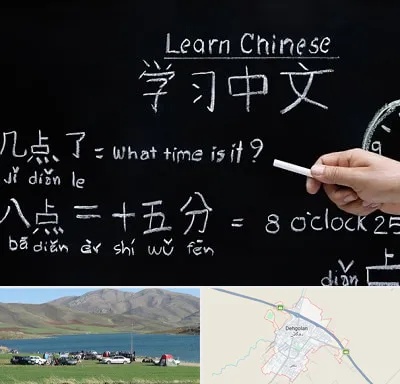 Learn Chinese
学习中文
几点了 = What time is it?
jǐ diǎn le
八点二十五分 = 8 o'clock 25
bā diǎn èr shí wǔ fēn
diǎn
9
Dehgolan